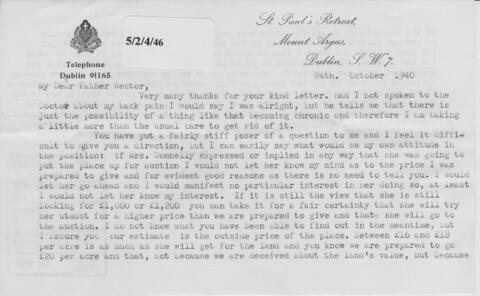 St. Paul's Retreat,
Mount Argus,
Dublin, S. W. 7.
5/2/4/46
Telephone
Dublin 91165.
24th. October 1940
My Dear Father Rector,
Very many thanks for your kind letter. Had I not spoken to the
Doctor about my back pain I would say I was alright, but he tells me that there is
just the possibility of a thing like that becoming chronic and therefore I am taking
a little more than the usual care to get rid of it.
You have put a fairly stiff poser of a question to me and I feel it diffi-
cult to give you a direction, but I can easily say what would be my own attitude in
the position: if Mrs. Donnelly expressed or implied in any way that she was going to
put the place up for auction I would not let her know my mind as to the price I was
prepared to give and for evident good reasons as there is no need to tell you. I would
let her go ahead and I would manifest no particular interest in her doing so, at least
I would not let her know my interest. If it is still the view that she is still
looking for £1,000 or £1,200 you can take it for a fair certainty that she will try
her utmost for a higher price than we are prepared to give and that she will go to
the auction. I do not know what you have been able to find out in the meantime, but
I assure you our estimate is the outside price of the place. Between £16 and £18
per acre is as much as she will get for the land and you know we are prepared to go
£20 per acre and that, not because we are deceived about the land's value, but because